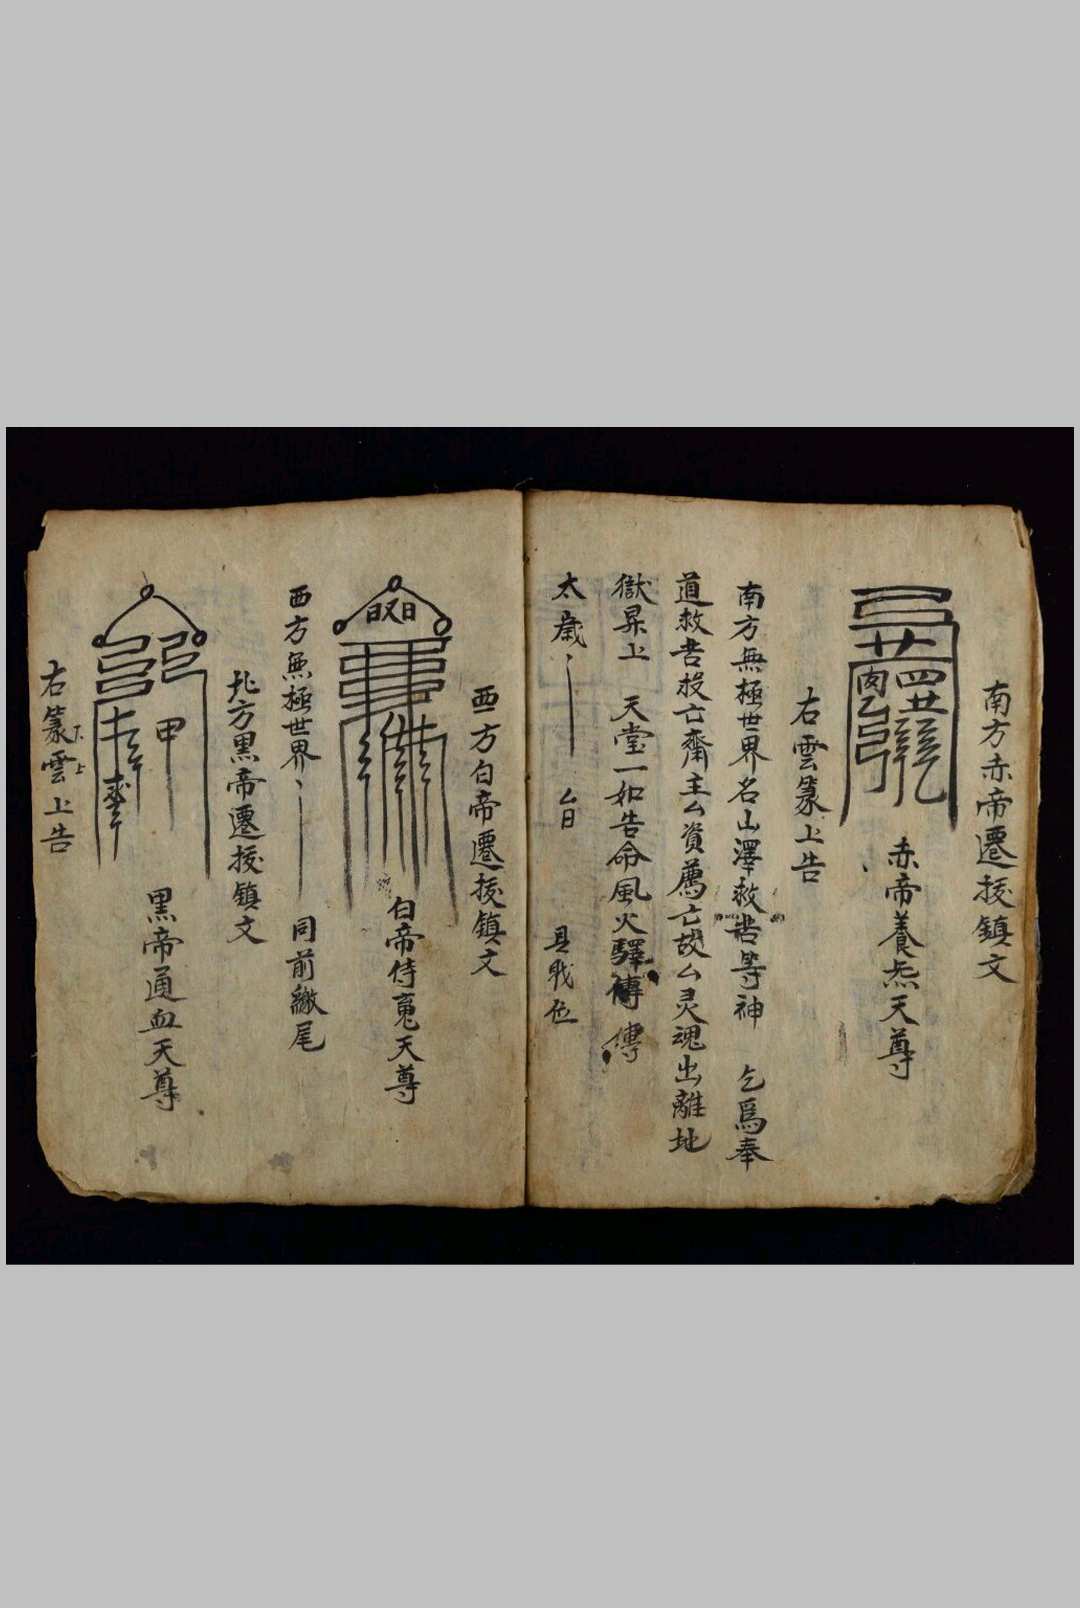 南方赤帝遷拔鎮文
赤帝養炁天尊
右雲篆上告
南方無極世界名山澤救苦等神 乞為奉
道救苦拔亡齋主厶資薦亡故厶灵魂出離地
獄昇上 天堂一如告命風火驛傳 傳
太歲 厶日 具戝位
西方白帝遷拔鎮文
日又日
白帝侍䰟天尊
西方無極世界 同前繳尾
北方黑帝遷拔鎮文
甲
黑帝通血天尊
右篆雲上告
下上